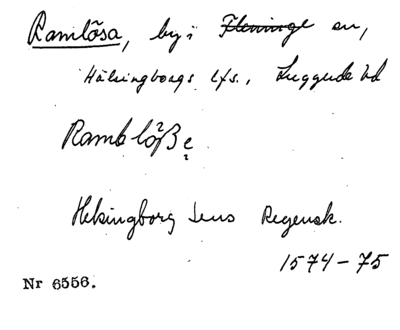 Ramlösa, by i Fleninge sn,
Hälsingborgs lfs., Luggude hd
Rambløße
Helsingborg Lens Regensk.
1574-75
Nr 6556.